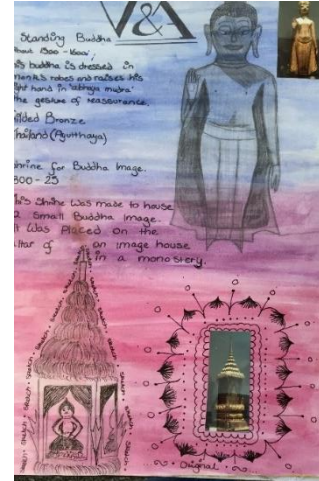 V&A
Standing Buddha
about 1500-1600,
this buddha is dressed in
monks robes and raises his
right hand in 'abhaya mudra'
the gesture of reassurance.
Gilded Bronze
Thailand (Ayutthaya)
Shrine for Buddha Image.
1800-25
This Shrine was made to house
a small Buddha Image.
It was placed on the
altar of an image house
in a monastery.
Sketch · Sketch · Sketch · Sketch · Sketch
Original